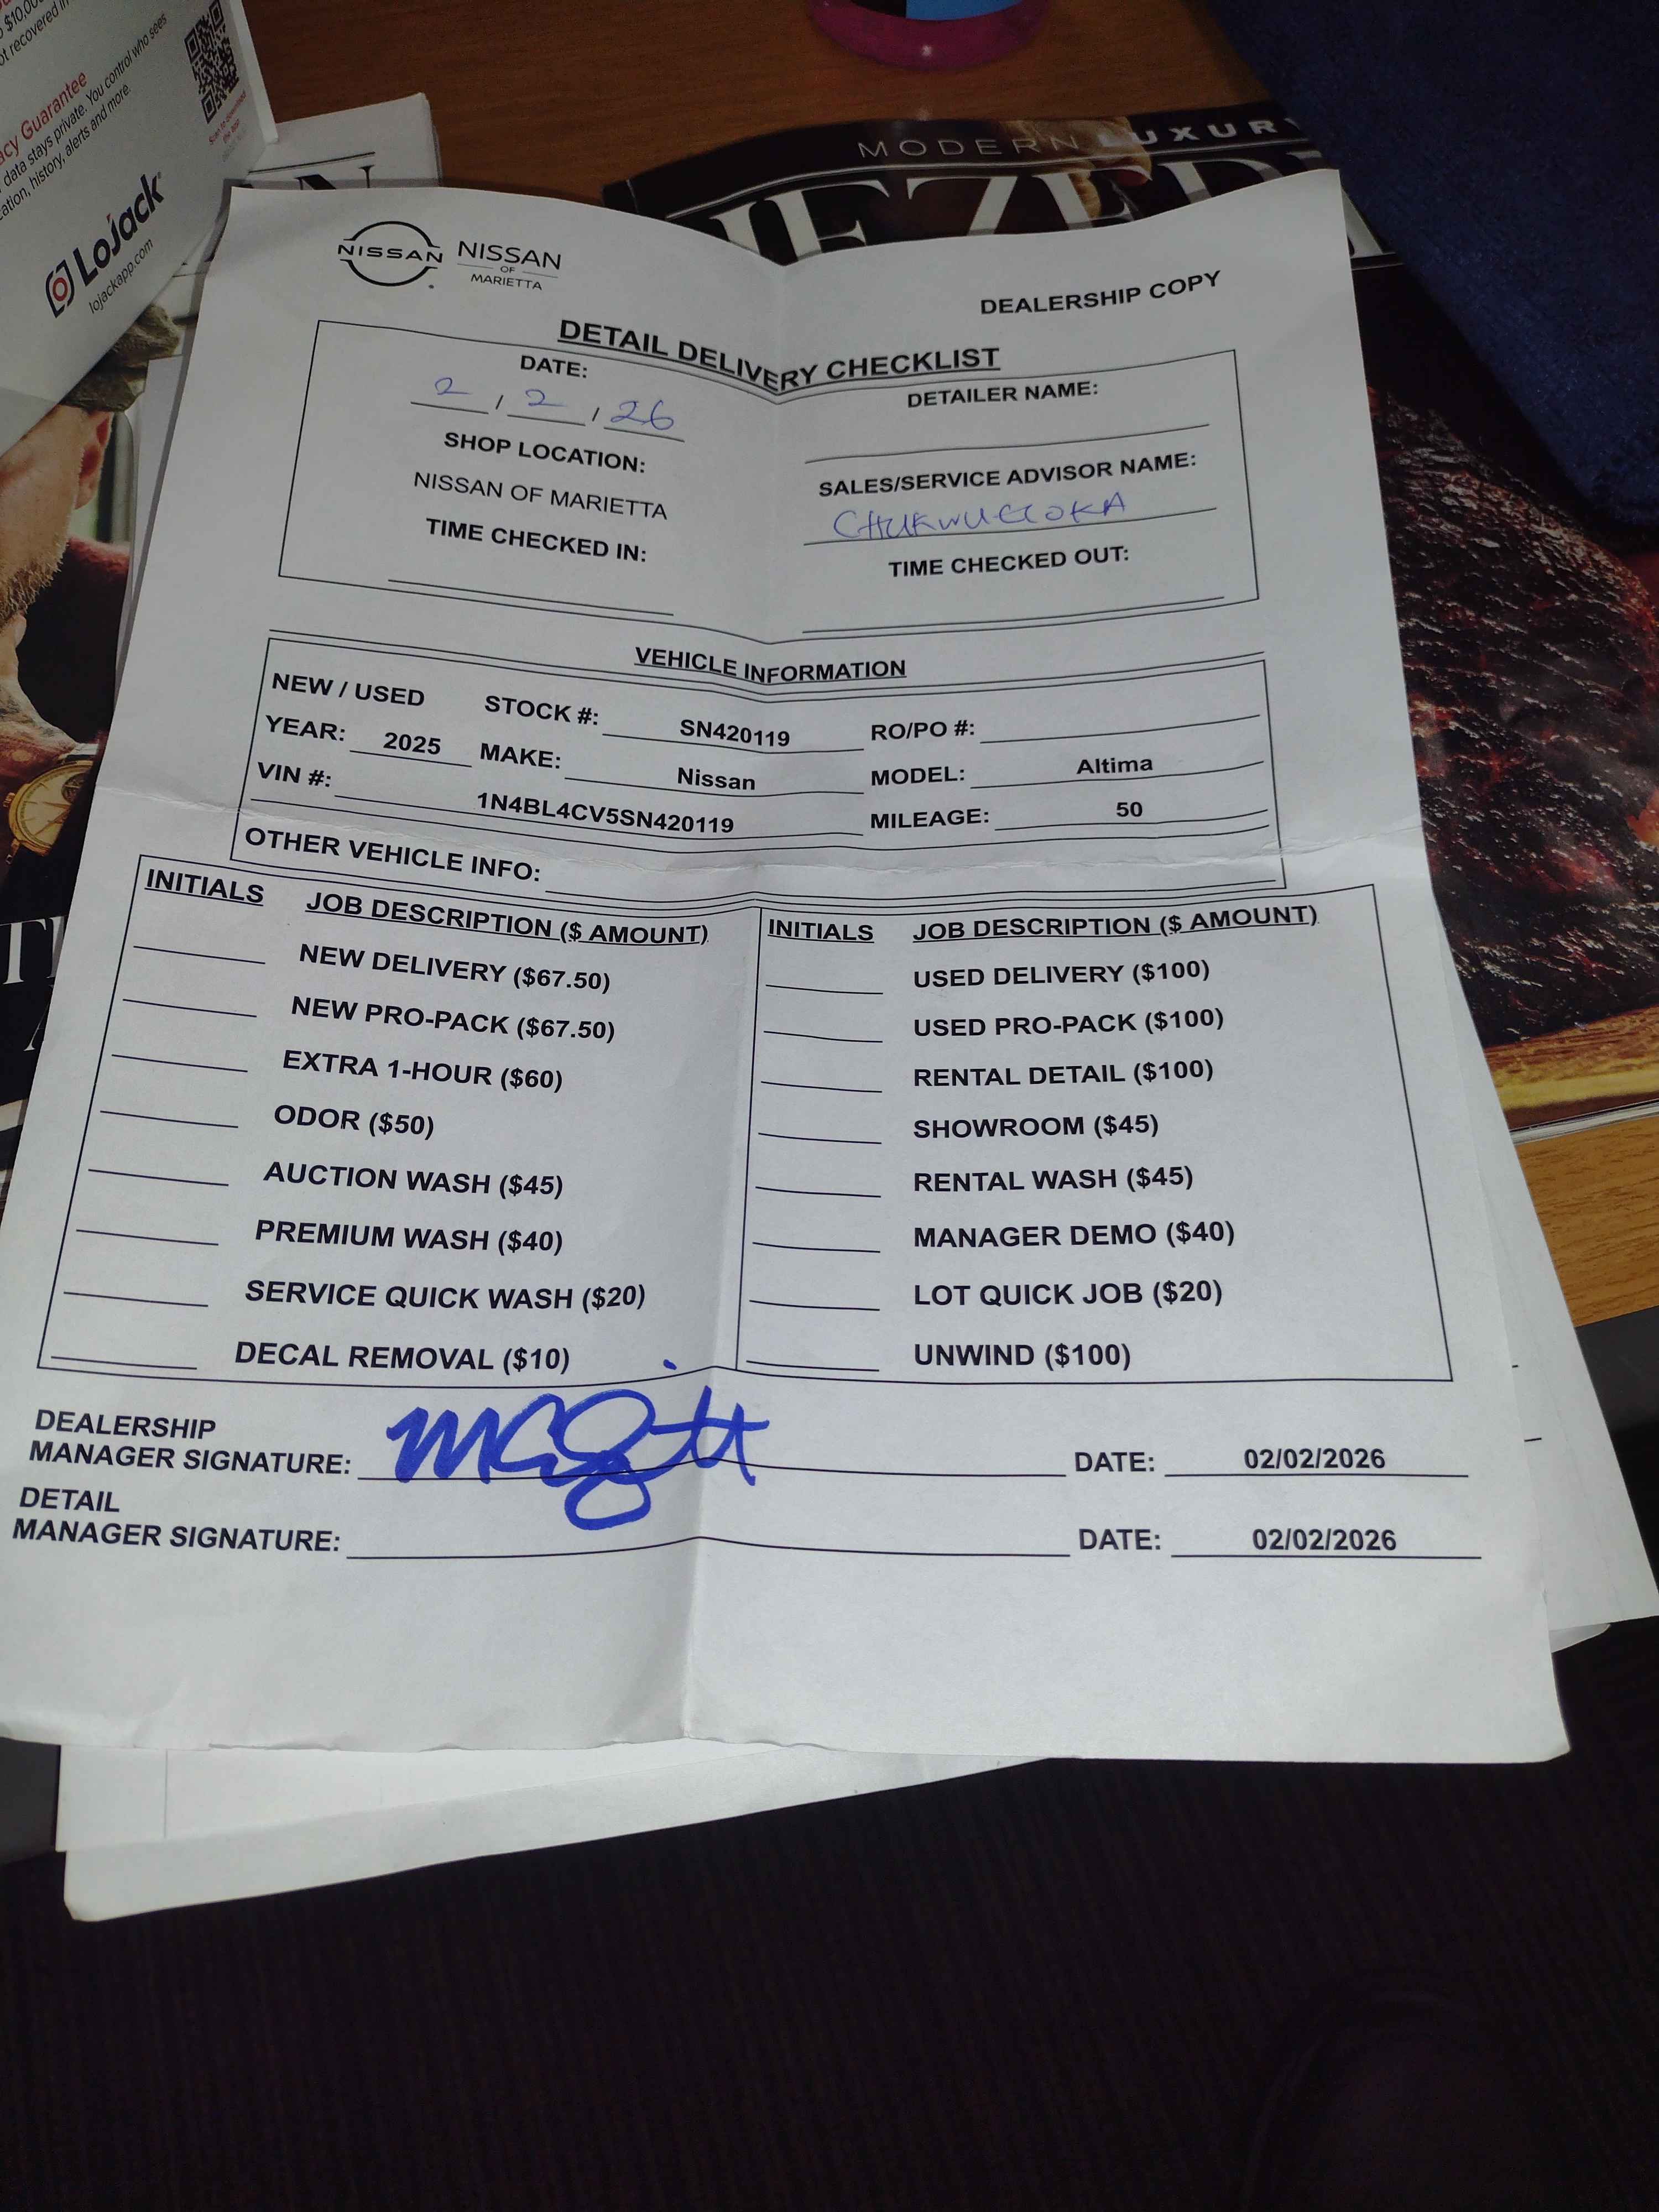 $10,000
not recovered in
acy Guarantee
data stays private. You control who sees
cation, history, alerts and more.
Scan to download
the app
LoJack
lojackapp.com
MODERN LUXURY
NISSAN
NISSAN
OF
MARIETTA
DEALERSHIP COPY
DETAIL DELIVERY CHECKLIST
DATE:
2 / 2 / 26
DETAILER NAME:
SHOP LOCATION:
NISSAN OF MARIETTA
SALES/SERVICE ADVISOR NAME:
TIME CHECKED IN:
TIME CHECKED OUT:
VEHICLE INFORMATION
NEW / USED STOCK #: SN420119 RO/PO #:
YEAR: 2025 MAKE: Nissan MODEL: Altima
VIN #: 1N4BL4CV5SN420119 MILEAGE: 50
OTHER VEHICLE INFO:
INITIALS JOB DESCRIPTION ($ AMOUNT) INITIALS JOB DESCRIPTION ($ AMOUNT)
NEW DELIVERY ($67.50) USED DELIVERY ($100)
NEW PRO-PACK ($67.50) USED PRO-PACK ($100)
EXTRA 1-HOUR ($60) RENTAL DETAIL ($100)
ODOR ($50) SHOWROOM ($45)
AUCTION WASH ($45) RENTAL WASH ($45)
PREMIUM WASH ($40) MANAGER DEMO ($40)
SERVICE QUICK WASH ($20) LOT QUICK JOB ($20)
DECAL REMOVAL ($10) UNWIND ($100)
DEALERSHIP
MANAGER SIGNATURE: DATE: 02/02/2026
DETAIL
MANAGER SIGNATURE: DATE: 02/02/2026